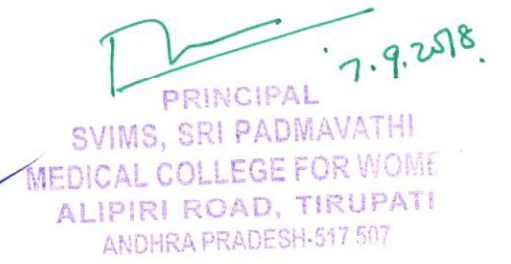 7.9.2018.
PRINCIPAL
SVIMS, SRI PADMAVATHI
MEDICAL COLLEGE FOR WOME
ALIPIRI ROAD, TIRUPATI
ANDHRA PRADESH-517 507